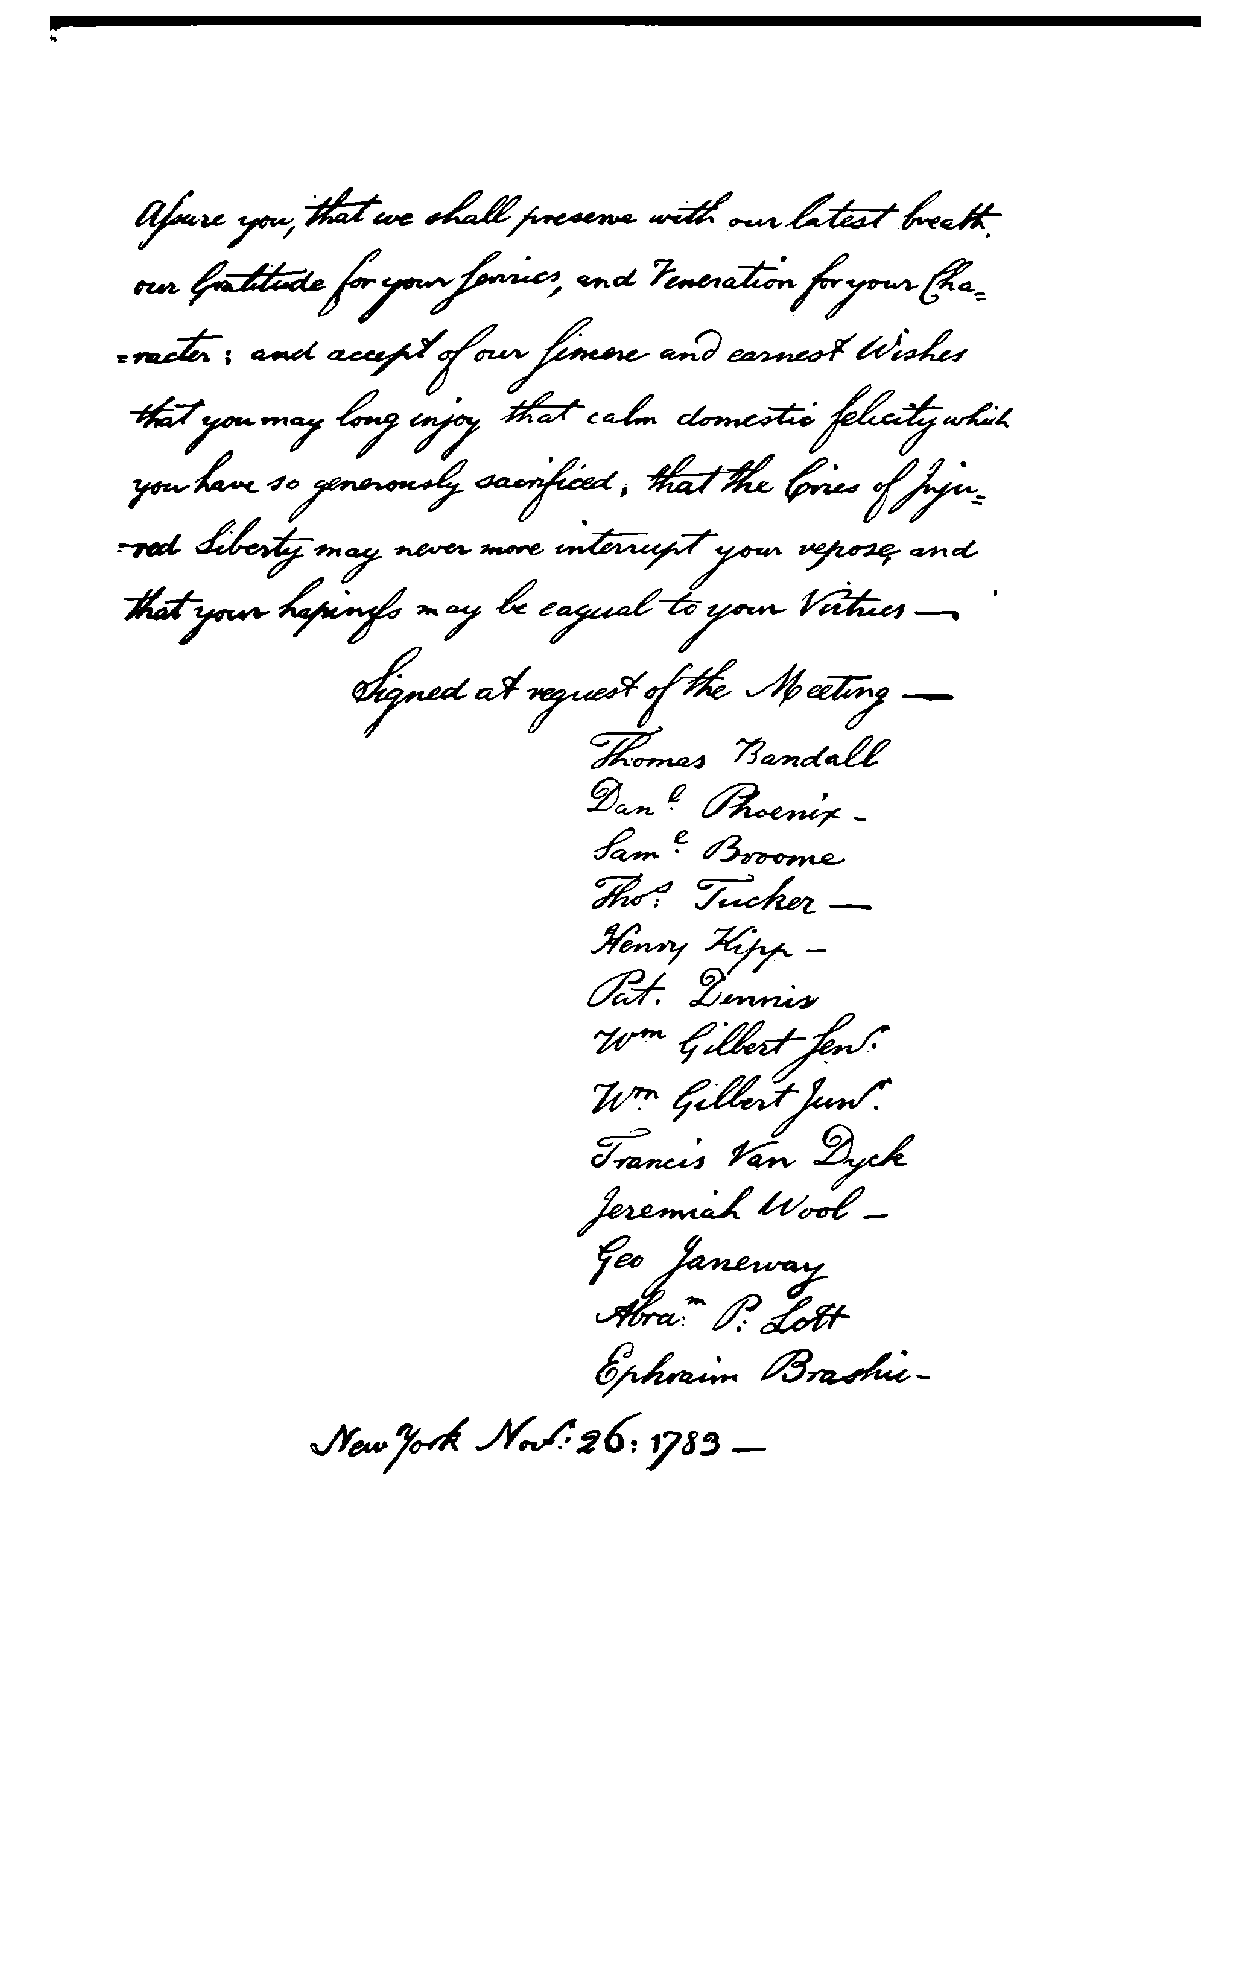 Assure you, that we shall preserve with our latest breath
our Gratitude for your Services, and Veneration for your Cha=
=racter; and accept of our Sincere and earnest Wishes
that you may long enjoy that calm domestic felicity which
you have so generously sacrificed, that the Cries of Inju=
=red Liberty may never more interrupt your repose, and
that your hapiness may be eaqual to your Virtues —
Signed at request of the Meeting —
Thomas Randall
Danl. Phoenix -
Saml. Broome
Thos. Tucker —
Henry Kipp -
Pat. Dennis
Wm Gilbert Senr.
Wm. Gilbert Junr.
Francis Van Dyck
Jeremiah Wool -
Geo Janeway
Abram. P. Lott
Ephraim Brashie-
New York Novr. 26: 1783 —